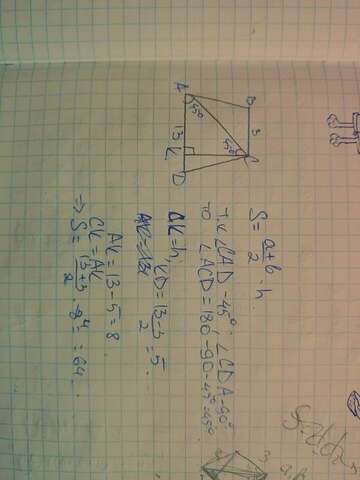 A
B
C
D
K
45°
45°
3
13
S = (a+b)/2 · h
т.к ∠CAD - 45° ∠CDA - 90°
то ∠ACD = 180 - 90 - 45° = 45°
CK = h, KD = (13-3)/2 = 5
AK = 13 - 5 = 8
CK = AK
⇒ S = (13+3)/2 · 8 = 64